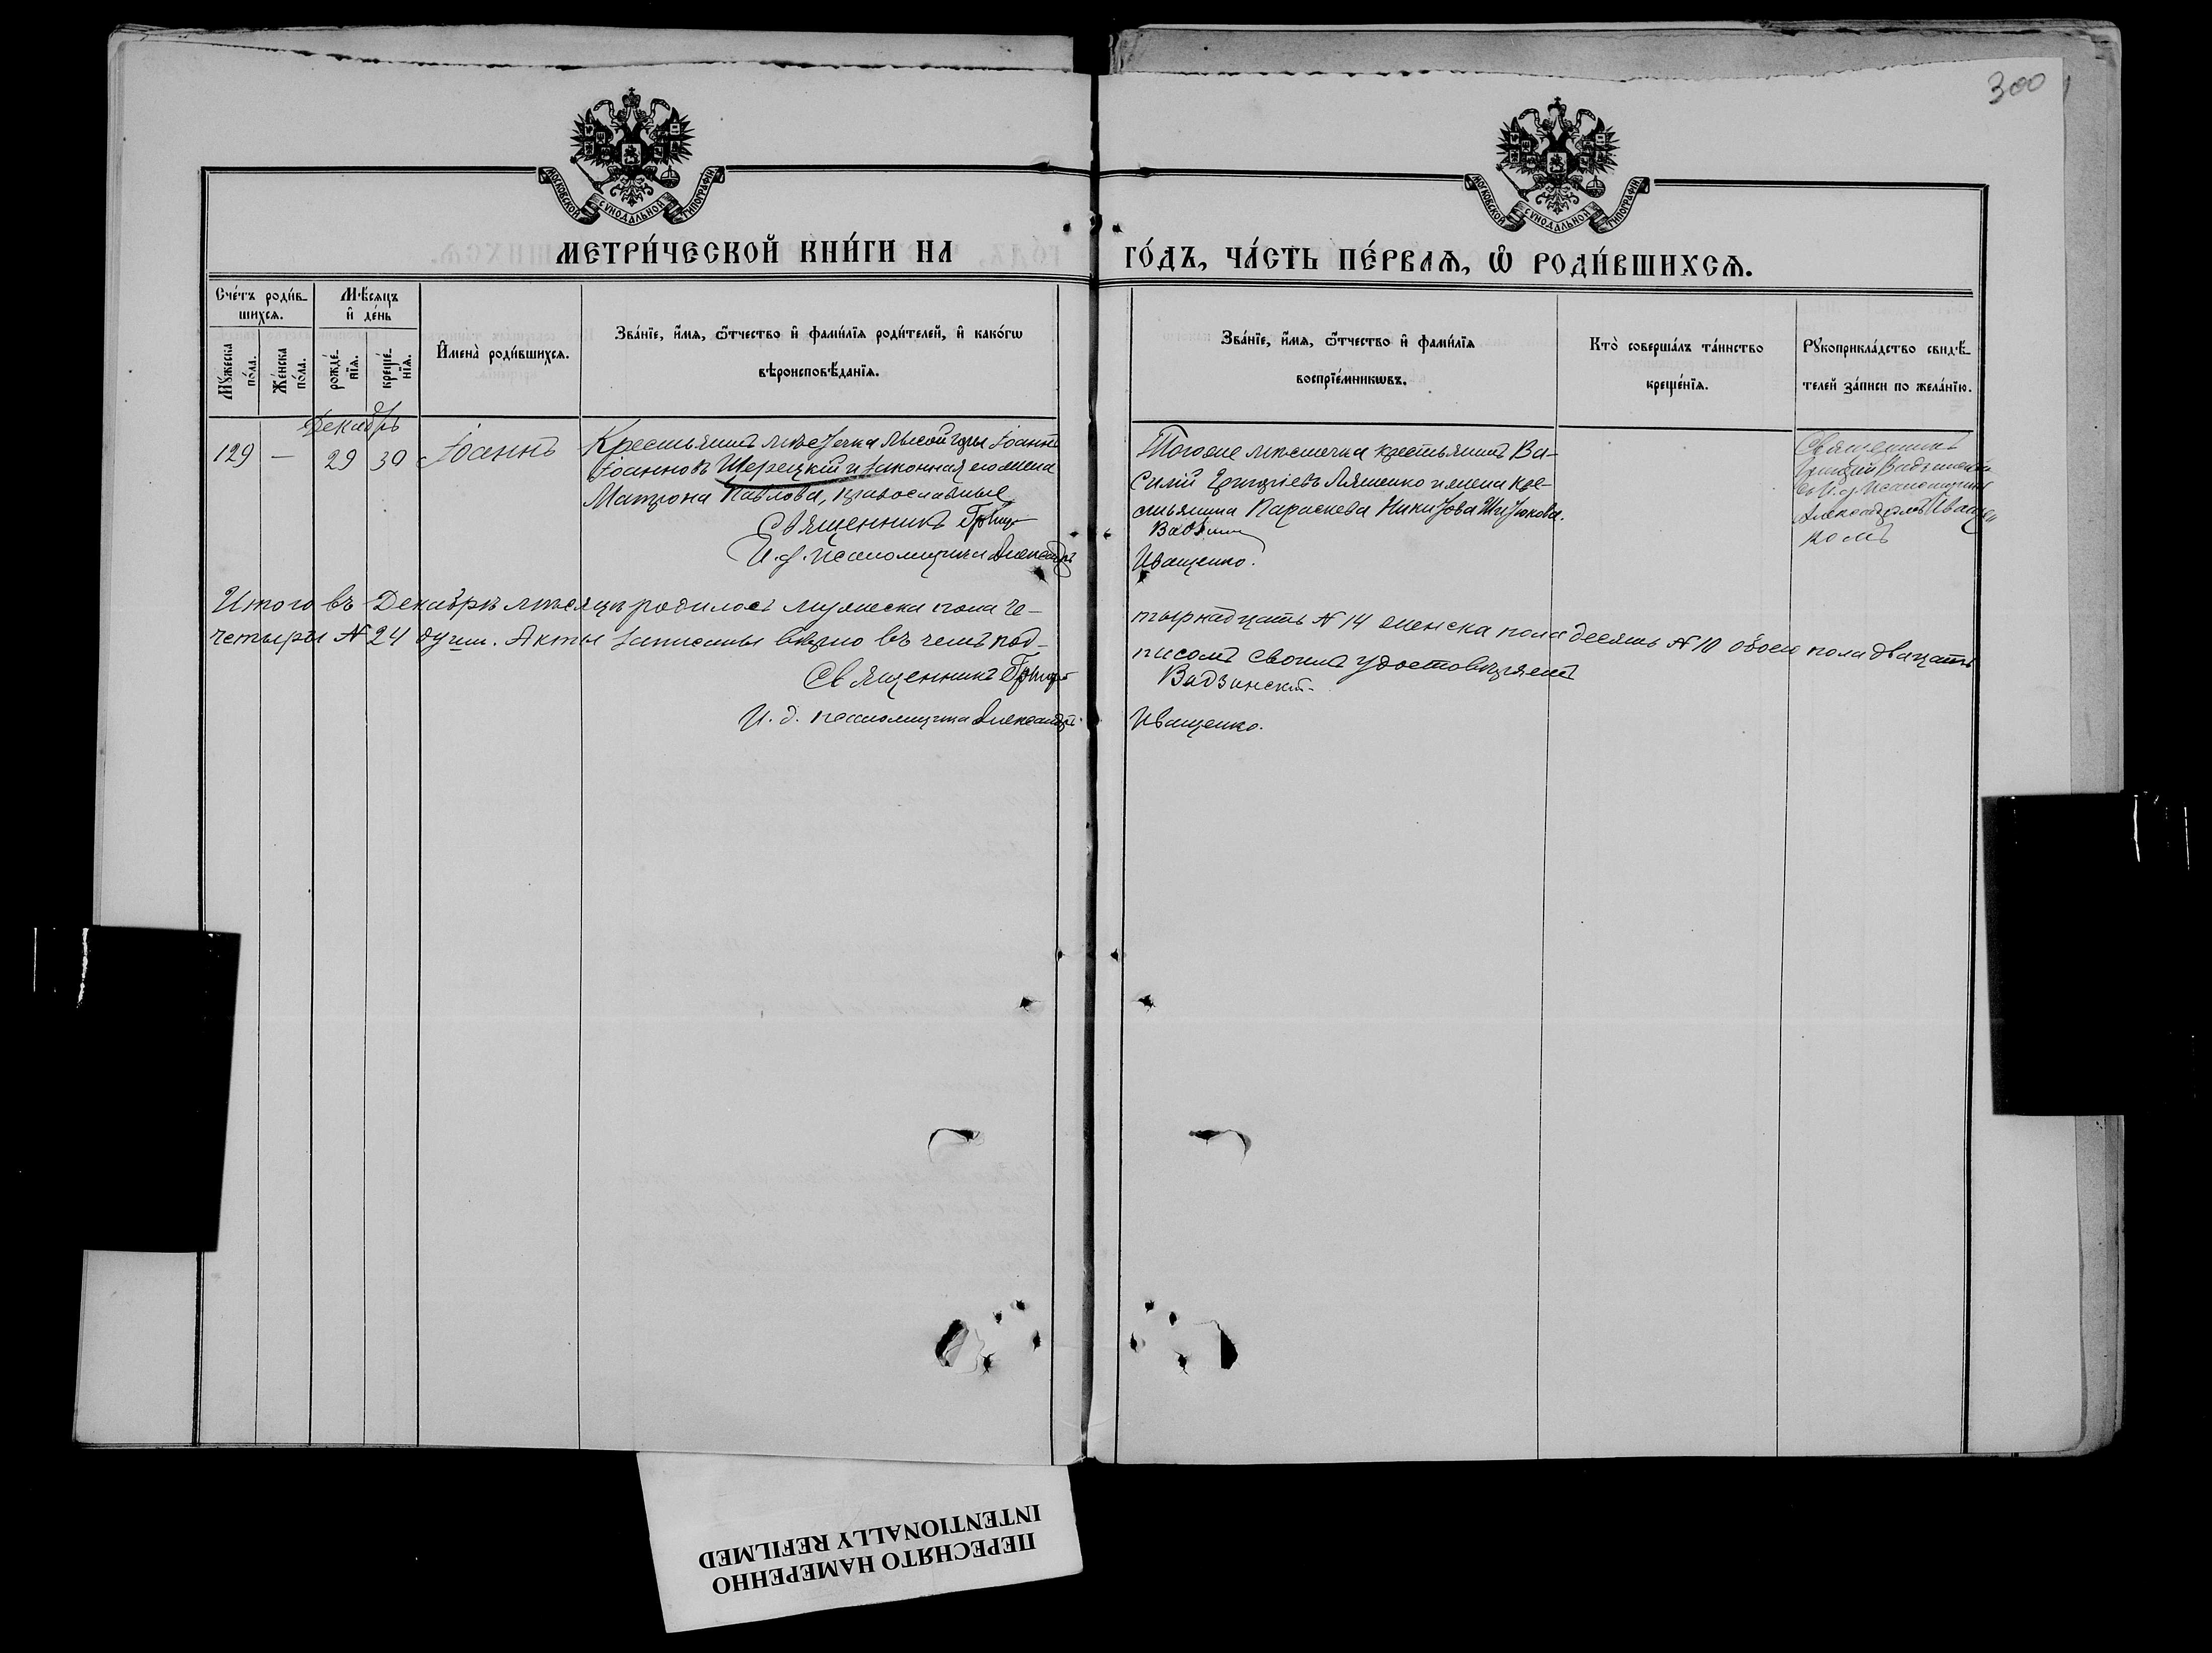 300
МОСКОВСКОЙ СУНОДАЛЬНОЙ ТИПОГРАФІИ
МОСКОВСКОЙ СУНОДАЛЬНОЙ ТИПОГРАФІИ
МЕТРИ́ЧЕСКОЙ КНИ́ГИ НА
ГО́ДЪ, ЧА́СТЬ ПЕ́РВАѦ, Ѡ҆ РОДИ́ВШИХСѦ.
Сче́тъ роди́в-
шихсѧ.
Мѣ́сѧцъ
и҆ де́нь
Мꙋ́жеска
по́ла.
Же́нска
по́ла.
рожде́-
нїѧ.
креще́-
нїѧ.
И҆мена̀ роди́вшихсѧ.
Зва́нїе, и҆́мѧ, ѻ҆́тчество и҆ фами́лїѧ роди́телей, и҆ како́гѡ
вѣроисповѣ́данїѧ.
Зва́нїе, и҆́мѧ, ѻ҆́тчество и҆ фами́лїѧ
воспрїе́мникѡвъ.
Кто̀ соверша́лъ та́инство
креще́нїѧ.
Рꙋкоприкла́дство свидѣ́-
телей за́писи по жела́нїю.
Декабрь
129 — 29 30 Іоаннъ
Крестьянинъ мѣстечка Лысой Горы Іоаннъ
Іоанновъ Шерецкій и законная его жена
Матрона Павлова, православные
Священникъ Григор
И. д. псаломщика Александръ
Тогоже мѣстечка крестьянинъ Ва-
силій Григоріевъ Ляшенко и жена кре-
стьянина Параскева Никитова
Вадзин
Иващенко.
Священникъ
Григорій Вадзинскій
съ И. д. Псаломщика
Александромъ Иващен
комъ
Итого въ Декабрѣ мѣсяцѣ родилось мужеска пола че-
тырнадцать № 14 женска пола десять № 10 обоего пола двацать
четыры № 24 душ. Акты записаны вѣрно въ чемъ под-
писомъ своимъ удостовѣряемъ
Священникъ Григорій
Вадзинскій
И. д. псаломщика Александръ
Иващенко.
ПЕРЕСНЯТО НАМЕРЕННО
INTENTIONALLY REFILMED